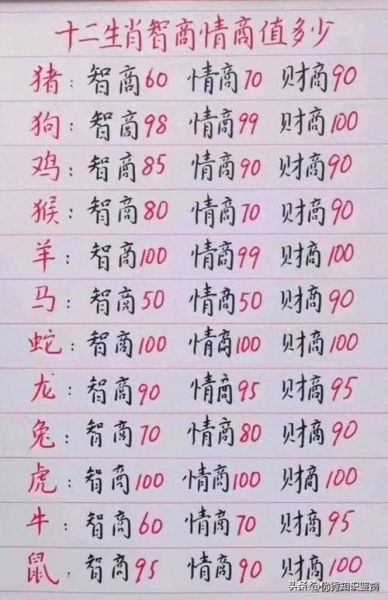 十二生肖智商情商值多少
猪：智商60 情商70 财商90
狗：智商98 情商99 财商100
鸡：智商85 情商90 财商90
猴：智商80 情商70 财商90
羊：智商100 情商99 财商100
马：智商50 情商50 财商90
蛇：智商100 情商100 财商100
龙：智商90 情商95 财商95
兔：智商70 情商80 财商90
虎：智商100 情商100 财商100
牛：智商60 情商70 财商95
鼠：智商95 情商90 财商100
头条@优秀知识鉴赏